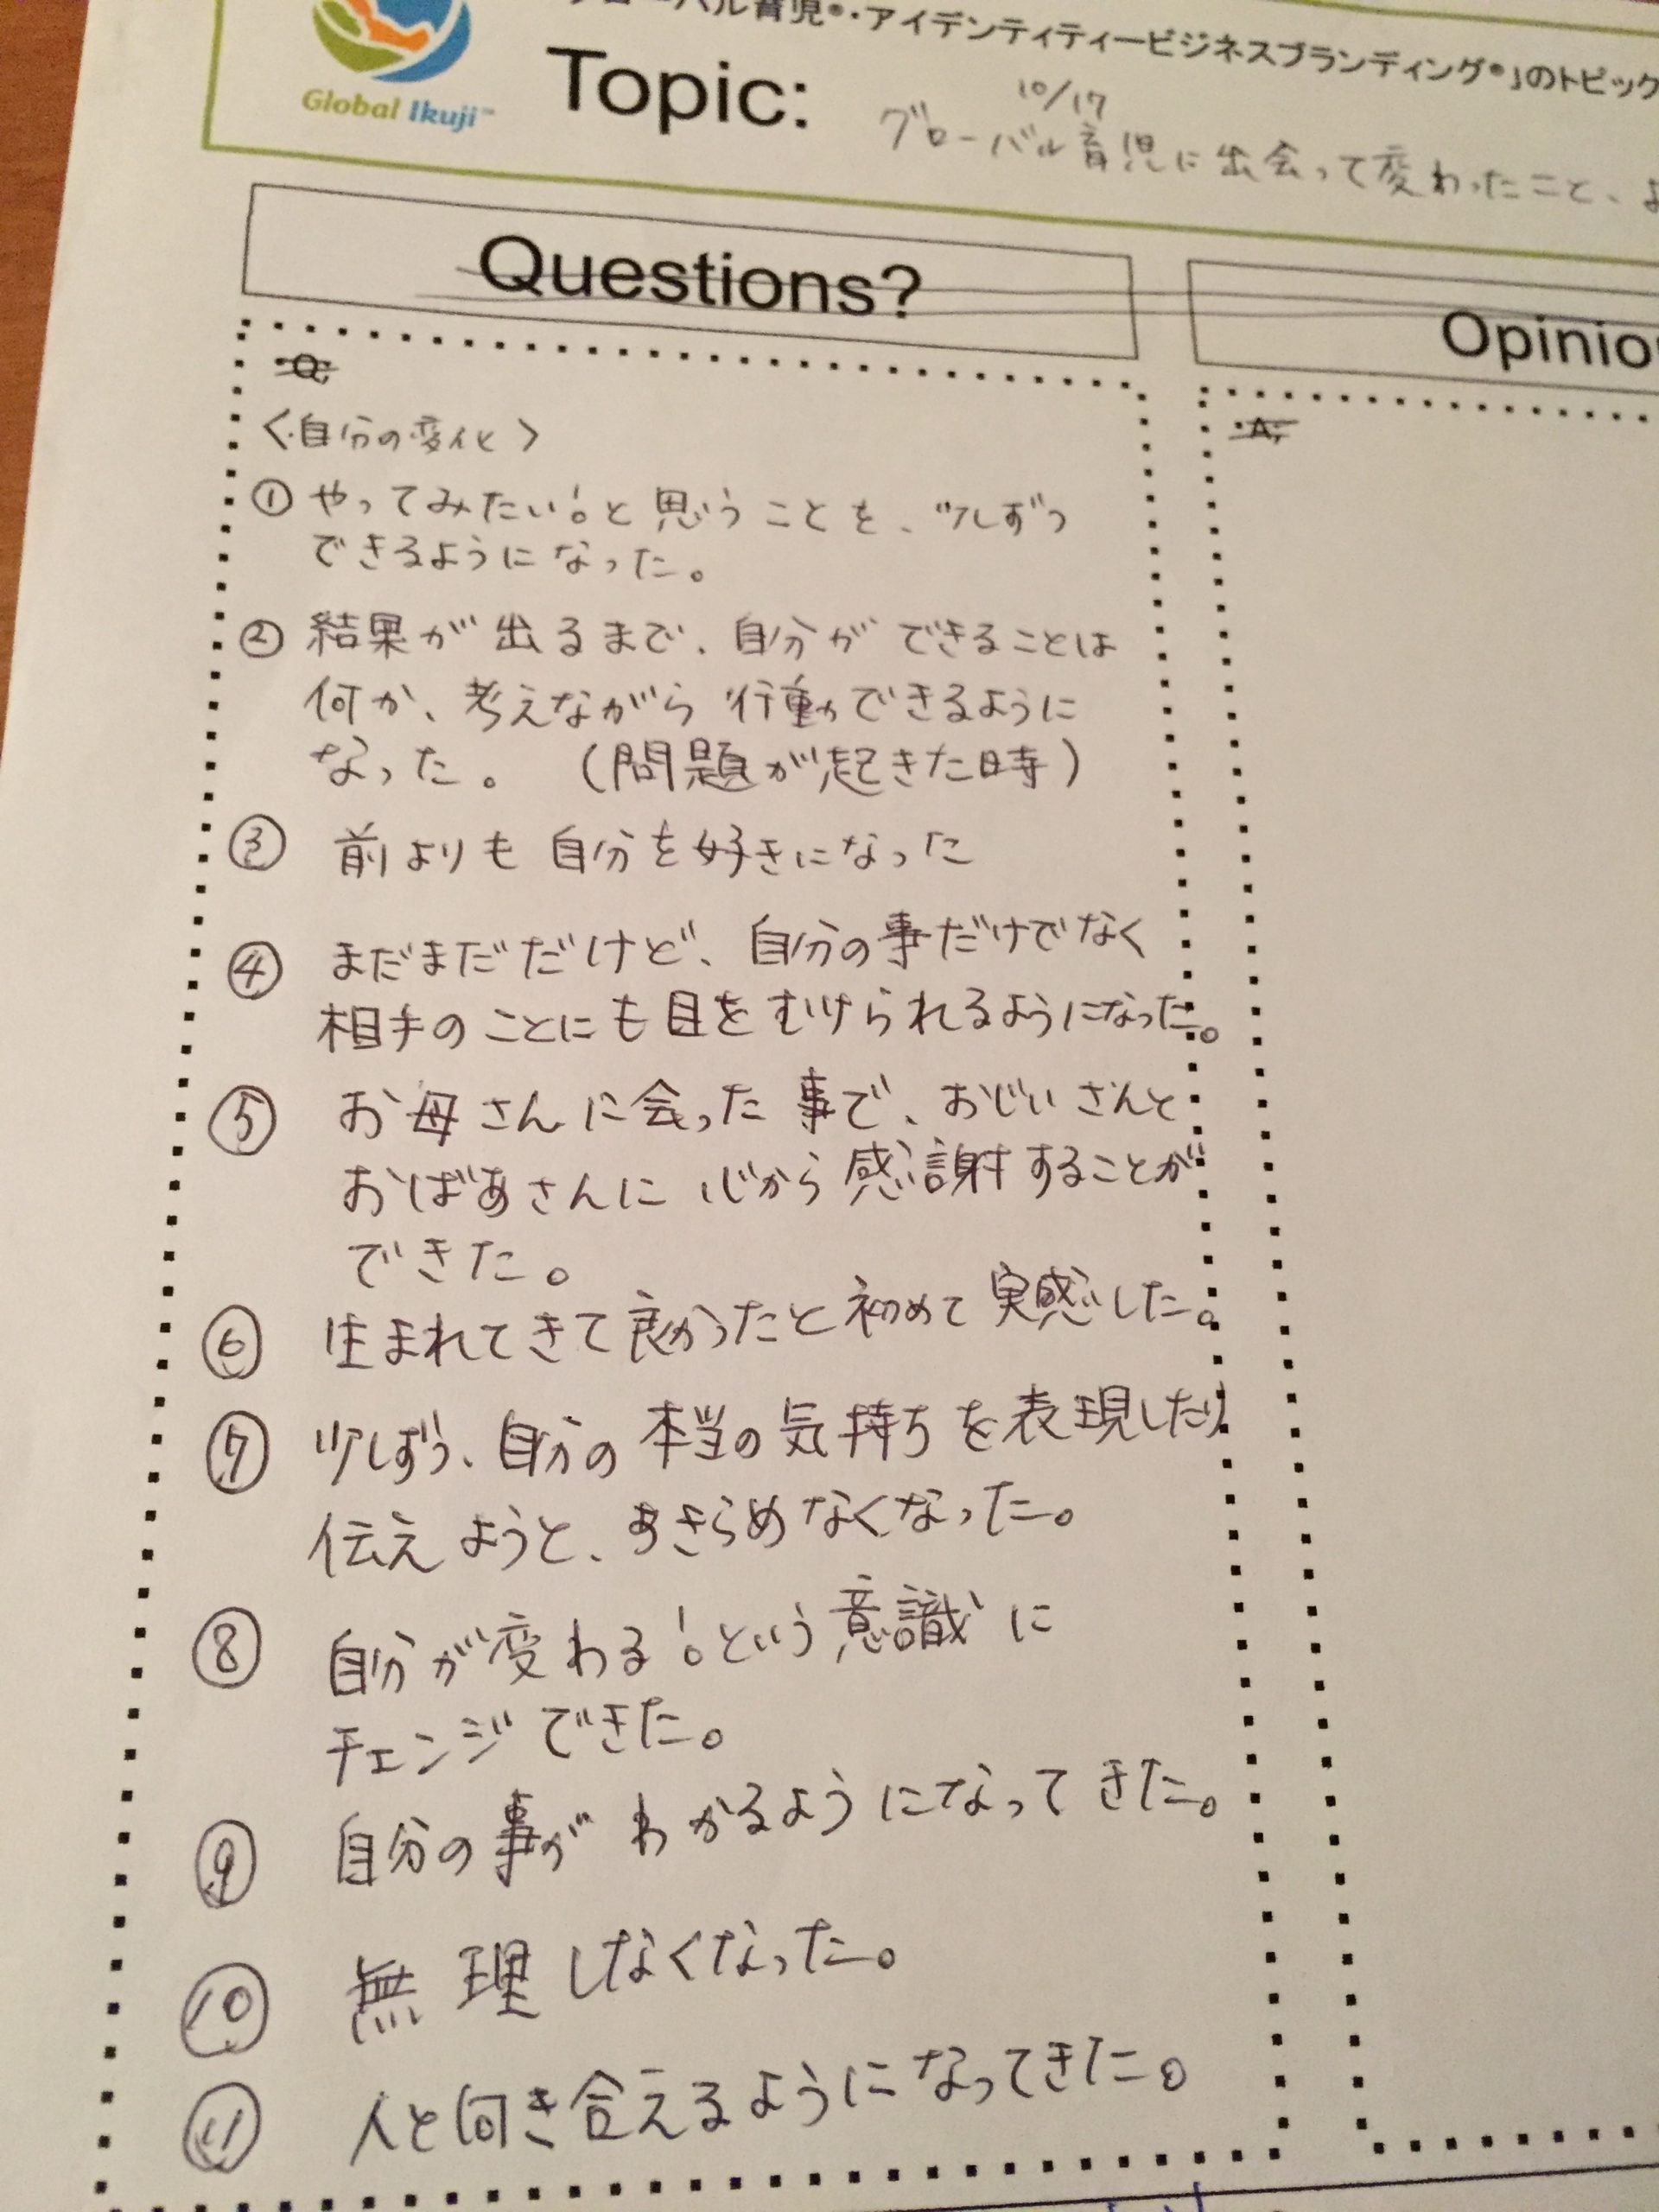 ーバル育児®・アイデンティティービジネスブランディング®」のトピック
Global Ikuji™
Topic:
10/17
グローバル育児に出会って変わったこと、よ
Questions?
Opinio
・Q;
・A;
〈・自分の変化〉
① やってみたい!と思うことを、少しずつ
できるようになった。
② 結果が出るまで、自分ができることは
何か、考えながら行動できるように
なった。 (問題が起きた時)
③ 前よりも自分を好きになった
④ まだまだだけど、自分の事だけでなく
相手のことにも目をむけられるようになった。
⑤ お母さんに会った事で、おじいさんと
おばあさんに心から感謝することが
できた。
⑥ 生まれてきて良かったと初めて実感した。
⑦ 少しずつ、自分の本当の気持ちを表現したり
伝えようと、あきらめなくなった。
⑧ 自分が変わる!という意識に
チェンジできた。
⑨ 自分の事がわかるようになってきた。
⑩ 無理しなくなった。
⑪ 人と向き合えるようになってきた。